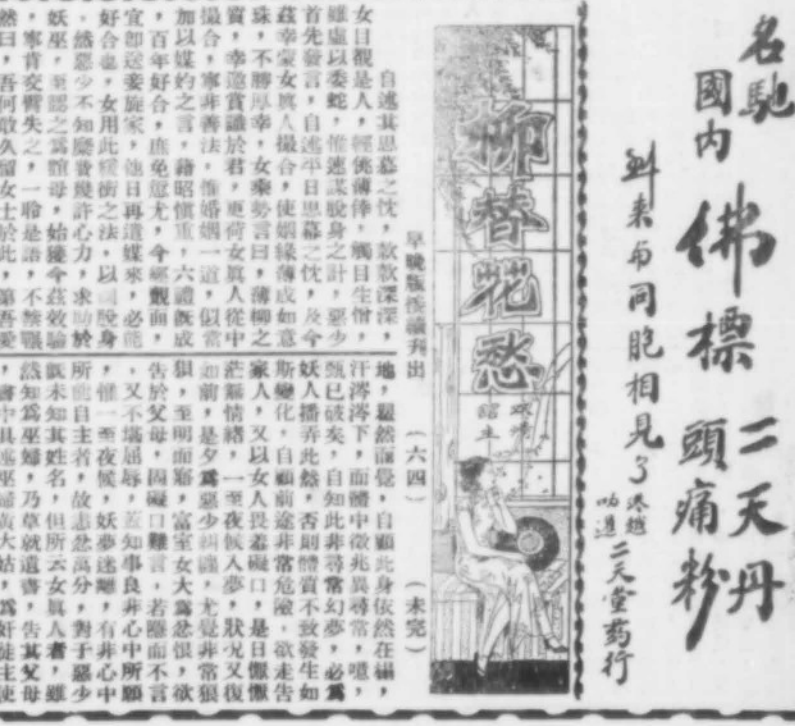 名馳
國內
佛標
二天丹
頭痛粉
到来与同胞相見了
港越
叻暹
二天堂药行
柳替花愁
早晚版接續刊出
（六四）
（未完）
自述其思慕之忱，款款深深，
女目覩是人，輕佻薄倖，觸目生憎，
雖虛以委蛇，惟速謀脫身之計，惡少
首先發言，自述平日思慕之忱，及今
茲幸蒙女眞人撮合，使姻緣薄成如意
珠，不勝厚幸，女乘勢言曰，薄柳之
質，幸邀賞識於君，更荷女眞人從中
撮合，寧非善法，惟婚姻一道，似當
加以媒妁之言，藉昭愼重，六禮旣成
，百年好合，庶免愆尤，今經覿面，
宜卽送妾旋家，他日再遣媒來，必能
好合也，女用此緩衝之法，以圖脫身
，然惡少不知廢昔幾許心力，求助於
妖巫，至認之爲誼母，始獲今茲效驗
，寧肯交臂失之，一聆是語，不禁囅
然曰，吾何敢久留女士於此，第吾愛
地，遽然而覺，自顧此身依然在榻，
汗涔涔下，而體中徵兆異尋常，噫，
甑已破矣，自知此非尋常幻夢，必爲
妖人播弄此然，否則體質不致發生如
斯變化，自顧前途非常危險，欲走告
家人，又以女人畏羞礙口，是日懨懨
茫無情緒，一至夜候入夢，狀况又復
如前，是夕爲惡少糾纏，尤覺非常狼
狽，至明而寤，富室女大爲忿恨，欲
告於父母，固礙口難言，若隱而不言
，又不堪屈辱，蓋知事良非心中所願
，惟一至夜候，妖夢迷離，有非心中
所能自主者，故悲忿萬分，對于惡少
旣未知其姓名，但所云女眞人者，雖
然知爲巫婦，乃草就遺書，告其父母
，書中具述巫婦黃大姑，爲奸徒主使